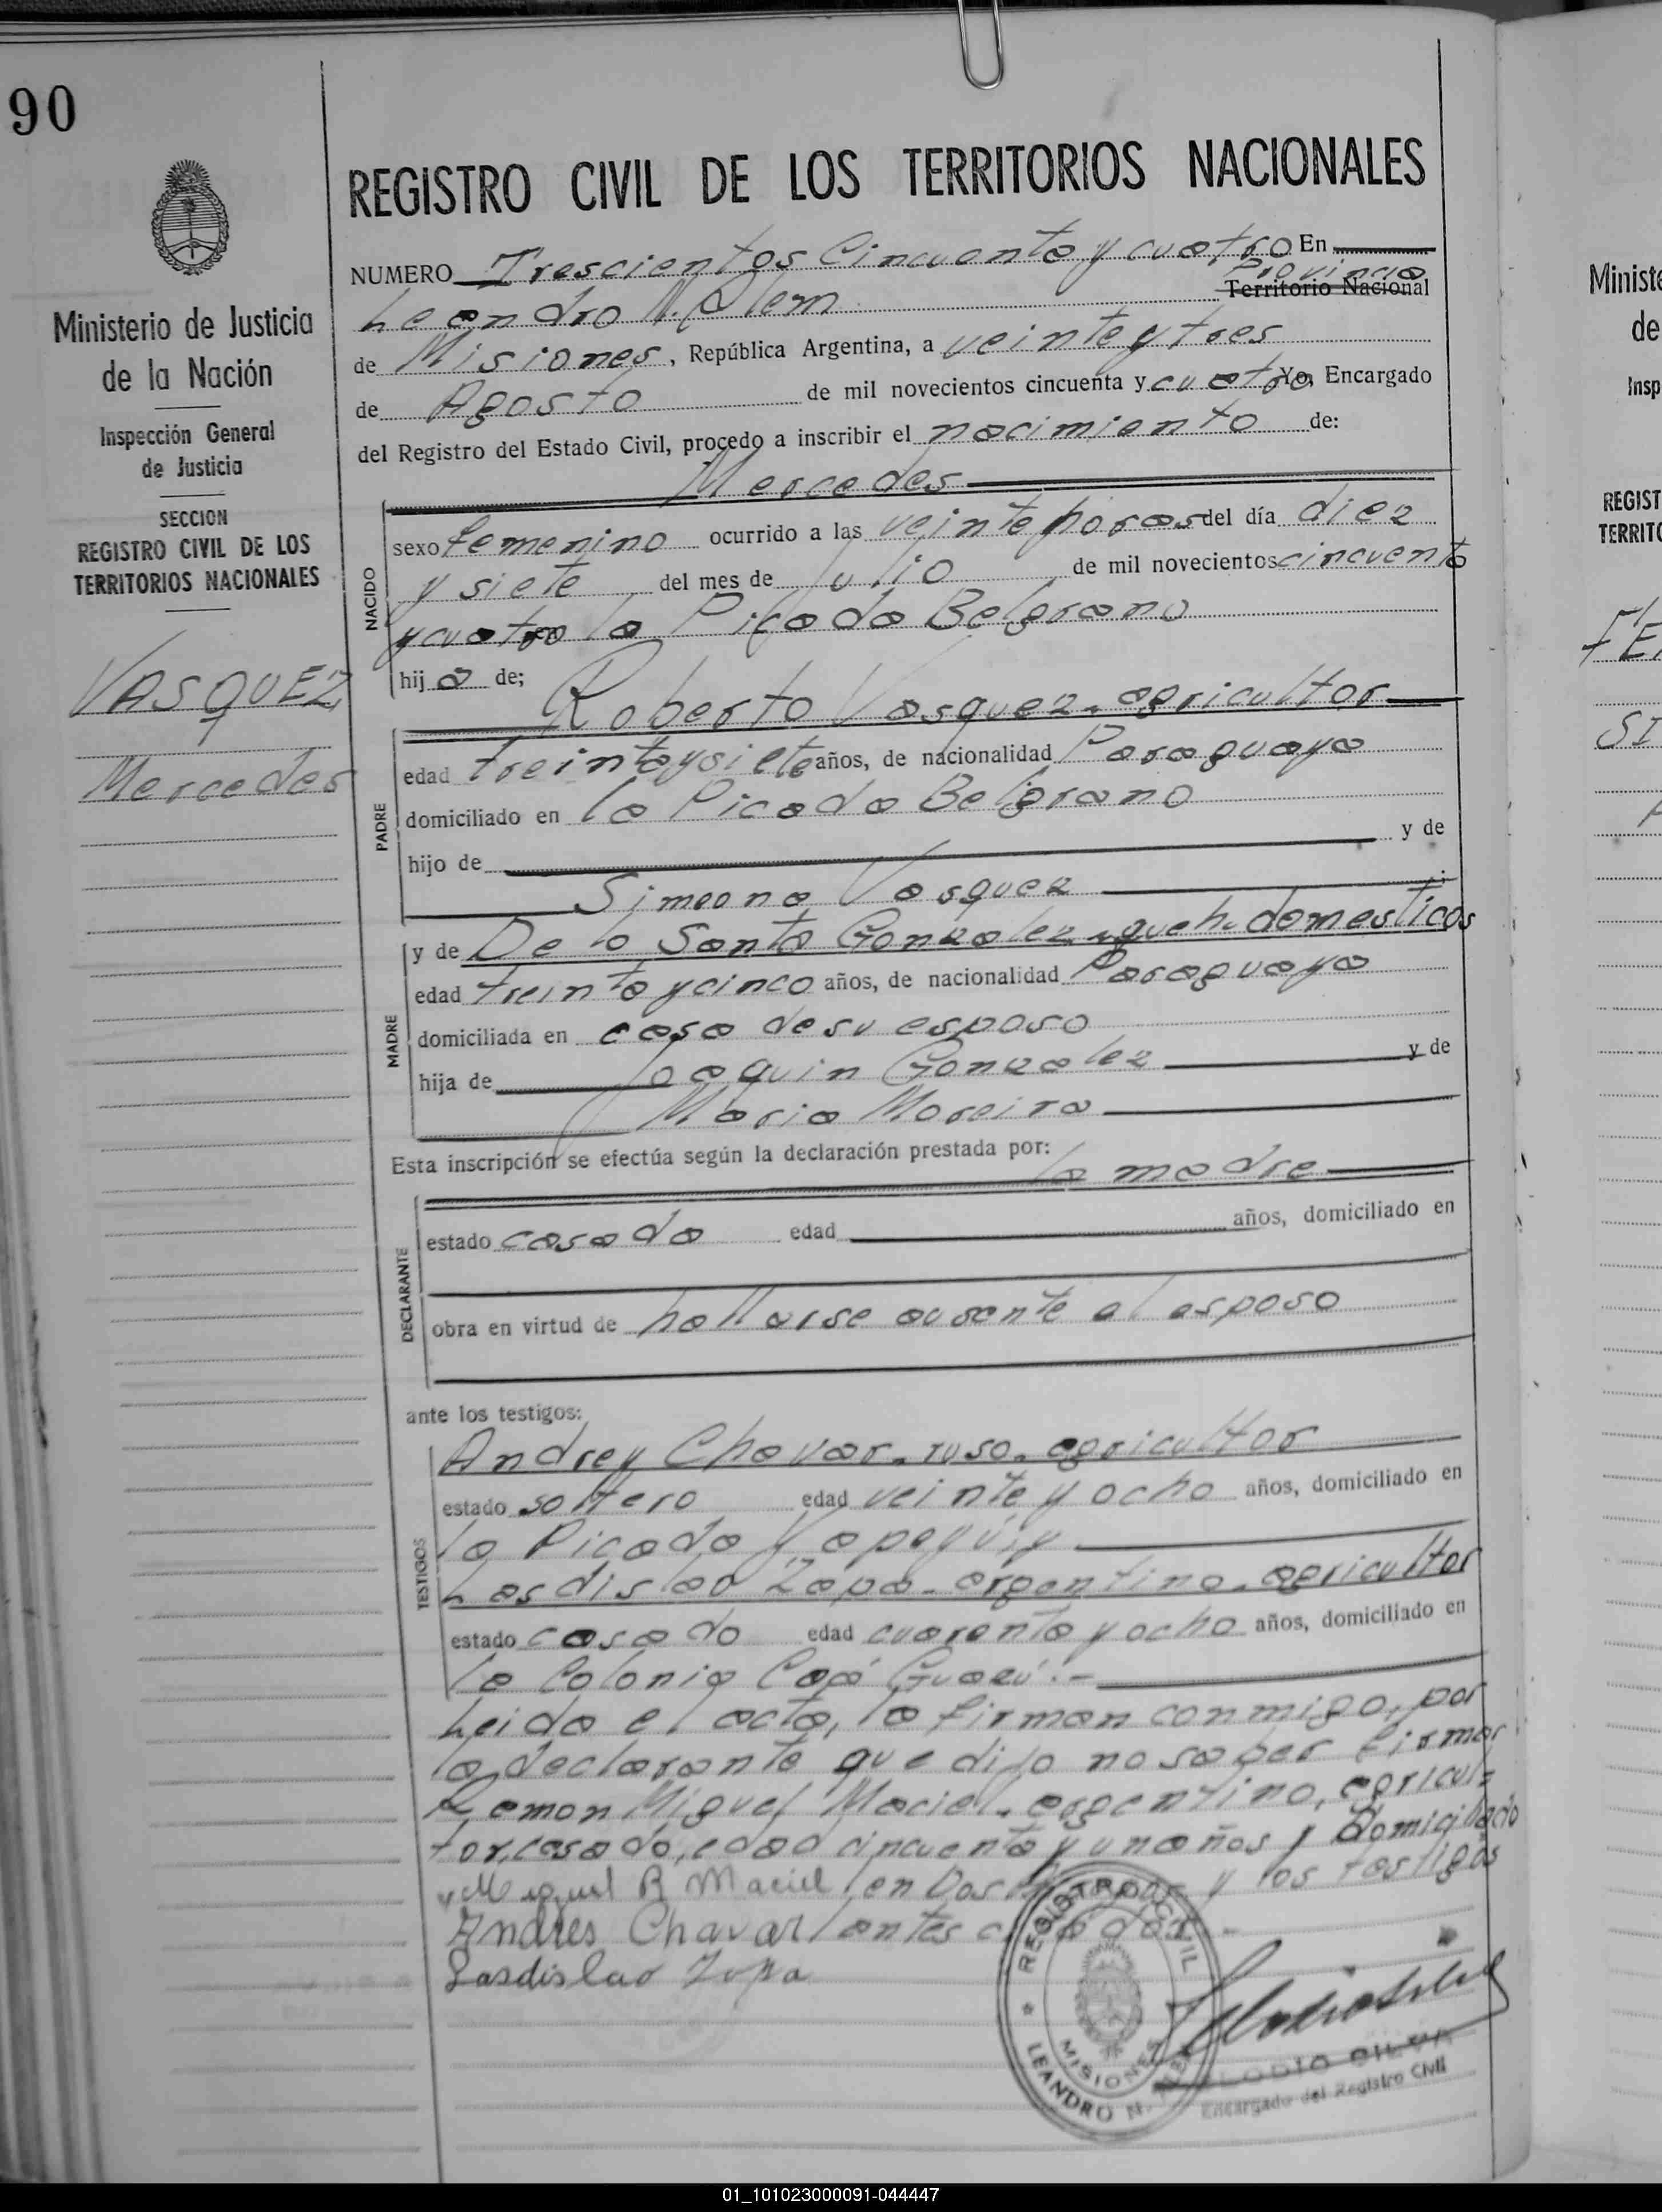 90
Ministerio de Justicia
de la Nación
Inspección General
de Justicia
SECCION
REGISTRO CIVIL DE LOS
TERRITORIOS NACIONALES
VASQUEZ,
Mercedes
REGISTRO CIVIL DE LOS TERRITORIOS NACIONALES
NUMERO Trescientos Cincuenta y cuatro En
Leandro N. Alem Provincia Territorio Nacional
de Misiones, República Argentina, a veinte y tres
de Agosto de mil novecientos cincuenta y cuatro Yo, Encargado
del Registro del Estado Civil, procedo a inscribir el nacimiento de:
Mercedes
NACIDO
sexo femenino ocurrido a las veinte horas del día diez
y siete del mes de Julio de mil novecientos cincuenta
y cuatro la Picada Belgrano
hij a de;
Roberto Vasquez - agricultor
PADRE
edad treinta y siete años, de nacionalidad Paraguaya
domiciliado en la Picada Belgrano
hijo de y de
Simeona Vasquez ;
MADRE
y de De la Santa Gonzalez - queh. domesticos
edad treinta y cinco años, de nacionalidad Paraguaya
domiciliada en casa de su esposo
hija de Joaquin Gonzalez y de
Maria Moreira
Esta inscripción se efectúa según la declaración prestada por:
la madre
DECLARANTE
estado casada edad años, domiciliado en
obra en virtud de hallarse ausente el esposo
ante los testigos:
TESTIGOS
Andrey Chavar - ruso - agricultor
estado soltero edad veinte y ocho años, domiciliado en
la Picada Yapeyú.y
Lasdislao Zapa - argentino - agricultor
estado casado edad cuarenta y ocho años, domiciliado en
la Colonia Caá Guazú.-
Leida el acta, la firman conmigo, por
la declarante que dijo no saber firmar
Ramon Miguel Maciel - argentino, agricul-
tor, casado, edad cincuenta y un años y domiciliado
Miguel R Maciel en Dos y los testigos
Andres Chavar antes
Lasdislao Zupa
REGISTRO CIVIL
MISIONES
LEANDRO N. ALEM
ELODIO SILVA
Encargado del Registro Civil
Ministe
de
Insp
REGIST
TERRITO
FE
SI
01_101023000091-044447